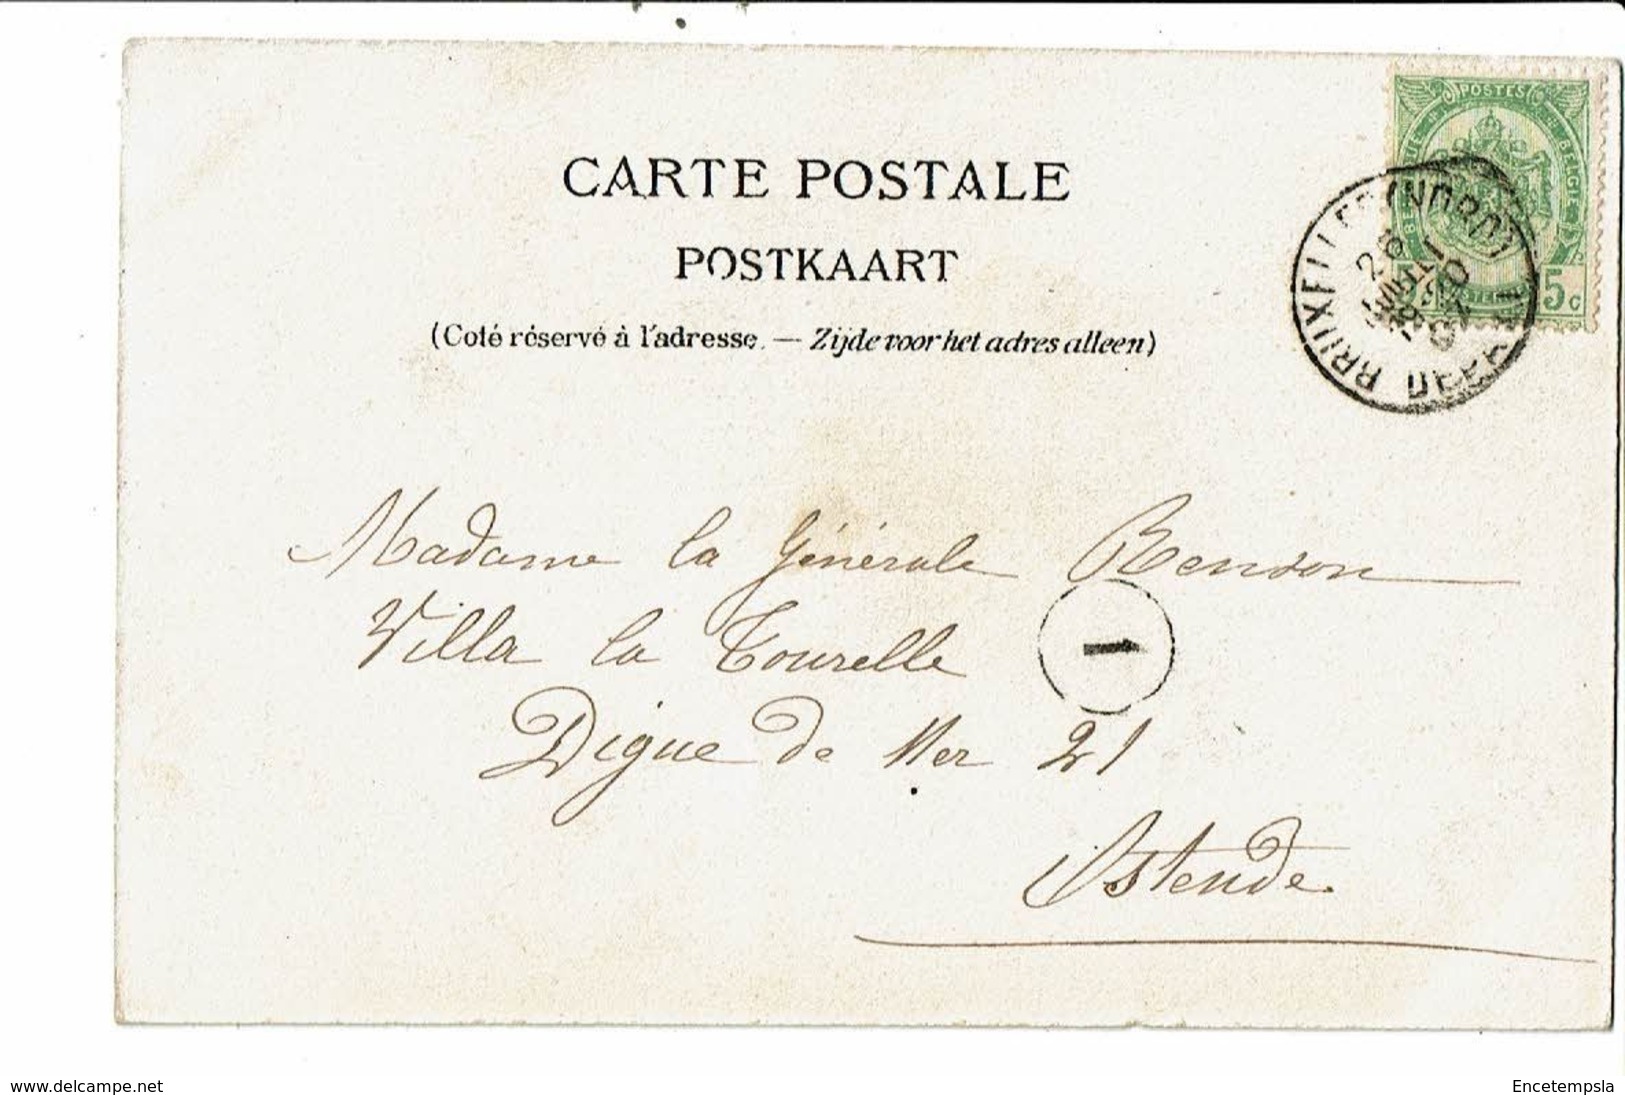 POSTES
BELGIQUE
5c
BRUXELLES (NORD)
DÉPART
CARTE POSTALE
POSTKAART
(Coté réservé à l'adresse. — Zijde voor het adres alleen)
Madame la Générale Renson
Villa la Tourelle
1
Digue de Mer 21
Ostende
www.delcampe.net
Encetempsla